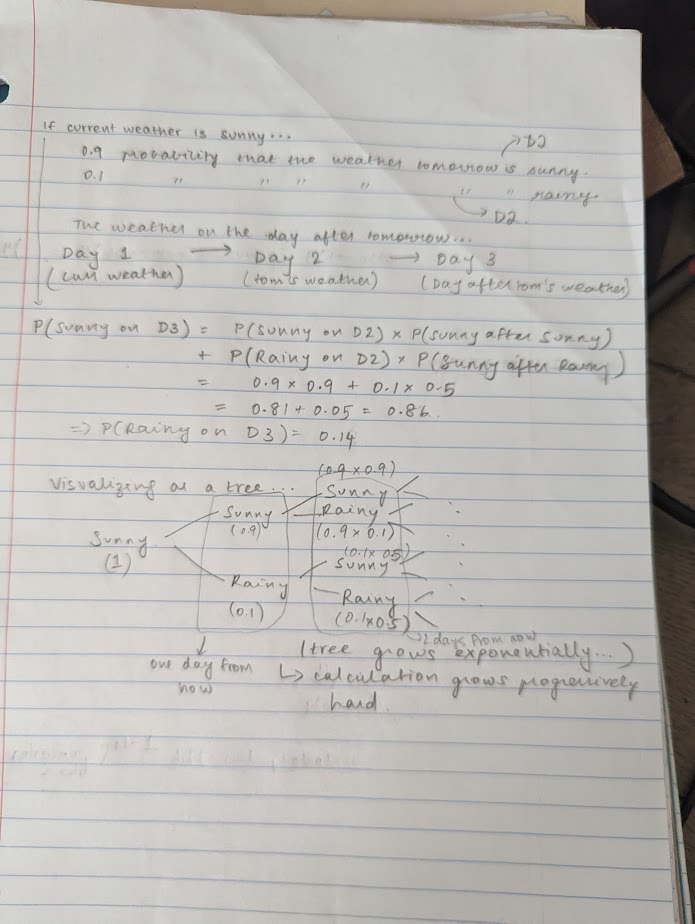 If current weather is sunny...
→D2
0.9 probability that the weather tomorrow is sunny.
0.1 " " " " " " rainy.
→D2.
The weather on the day after tomorrow...
Day 1 → Day 2 → Day 3
(curr weather) (tom's weather) (Day after tom's weather)
P(Sunny on D3) = P(Sunny on D2) x P(sunny after Sunny)
+ P(Rainy on D2) x P(Sunny after Rainy)
= 0.9 x 0.9 + 0.1 x 0.5
= 0.81 + 0.05 = 0.86.
=> P(Rainy on D3) = 0.14
(0.9 x 0.9)
Visualizing as a tree...
Sunny
Sunny Rainy
(0.9) (0.9 x 0.1)
Sunny (0.1 x 0.5)
(1) Sunny
Rainy Rainy
(0.1) (0.1 x 0.5)
↳2 days from now
one day from now
(tree grows exponentially...)
↳ calculation grows progressively
hard.